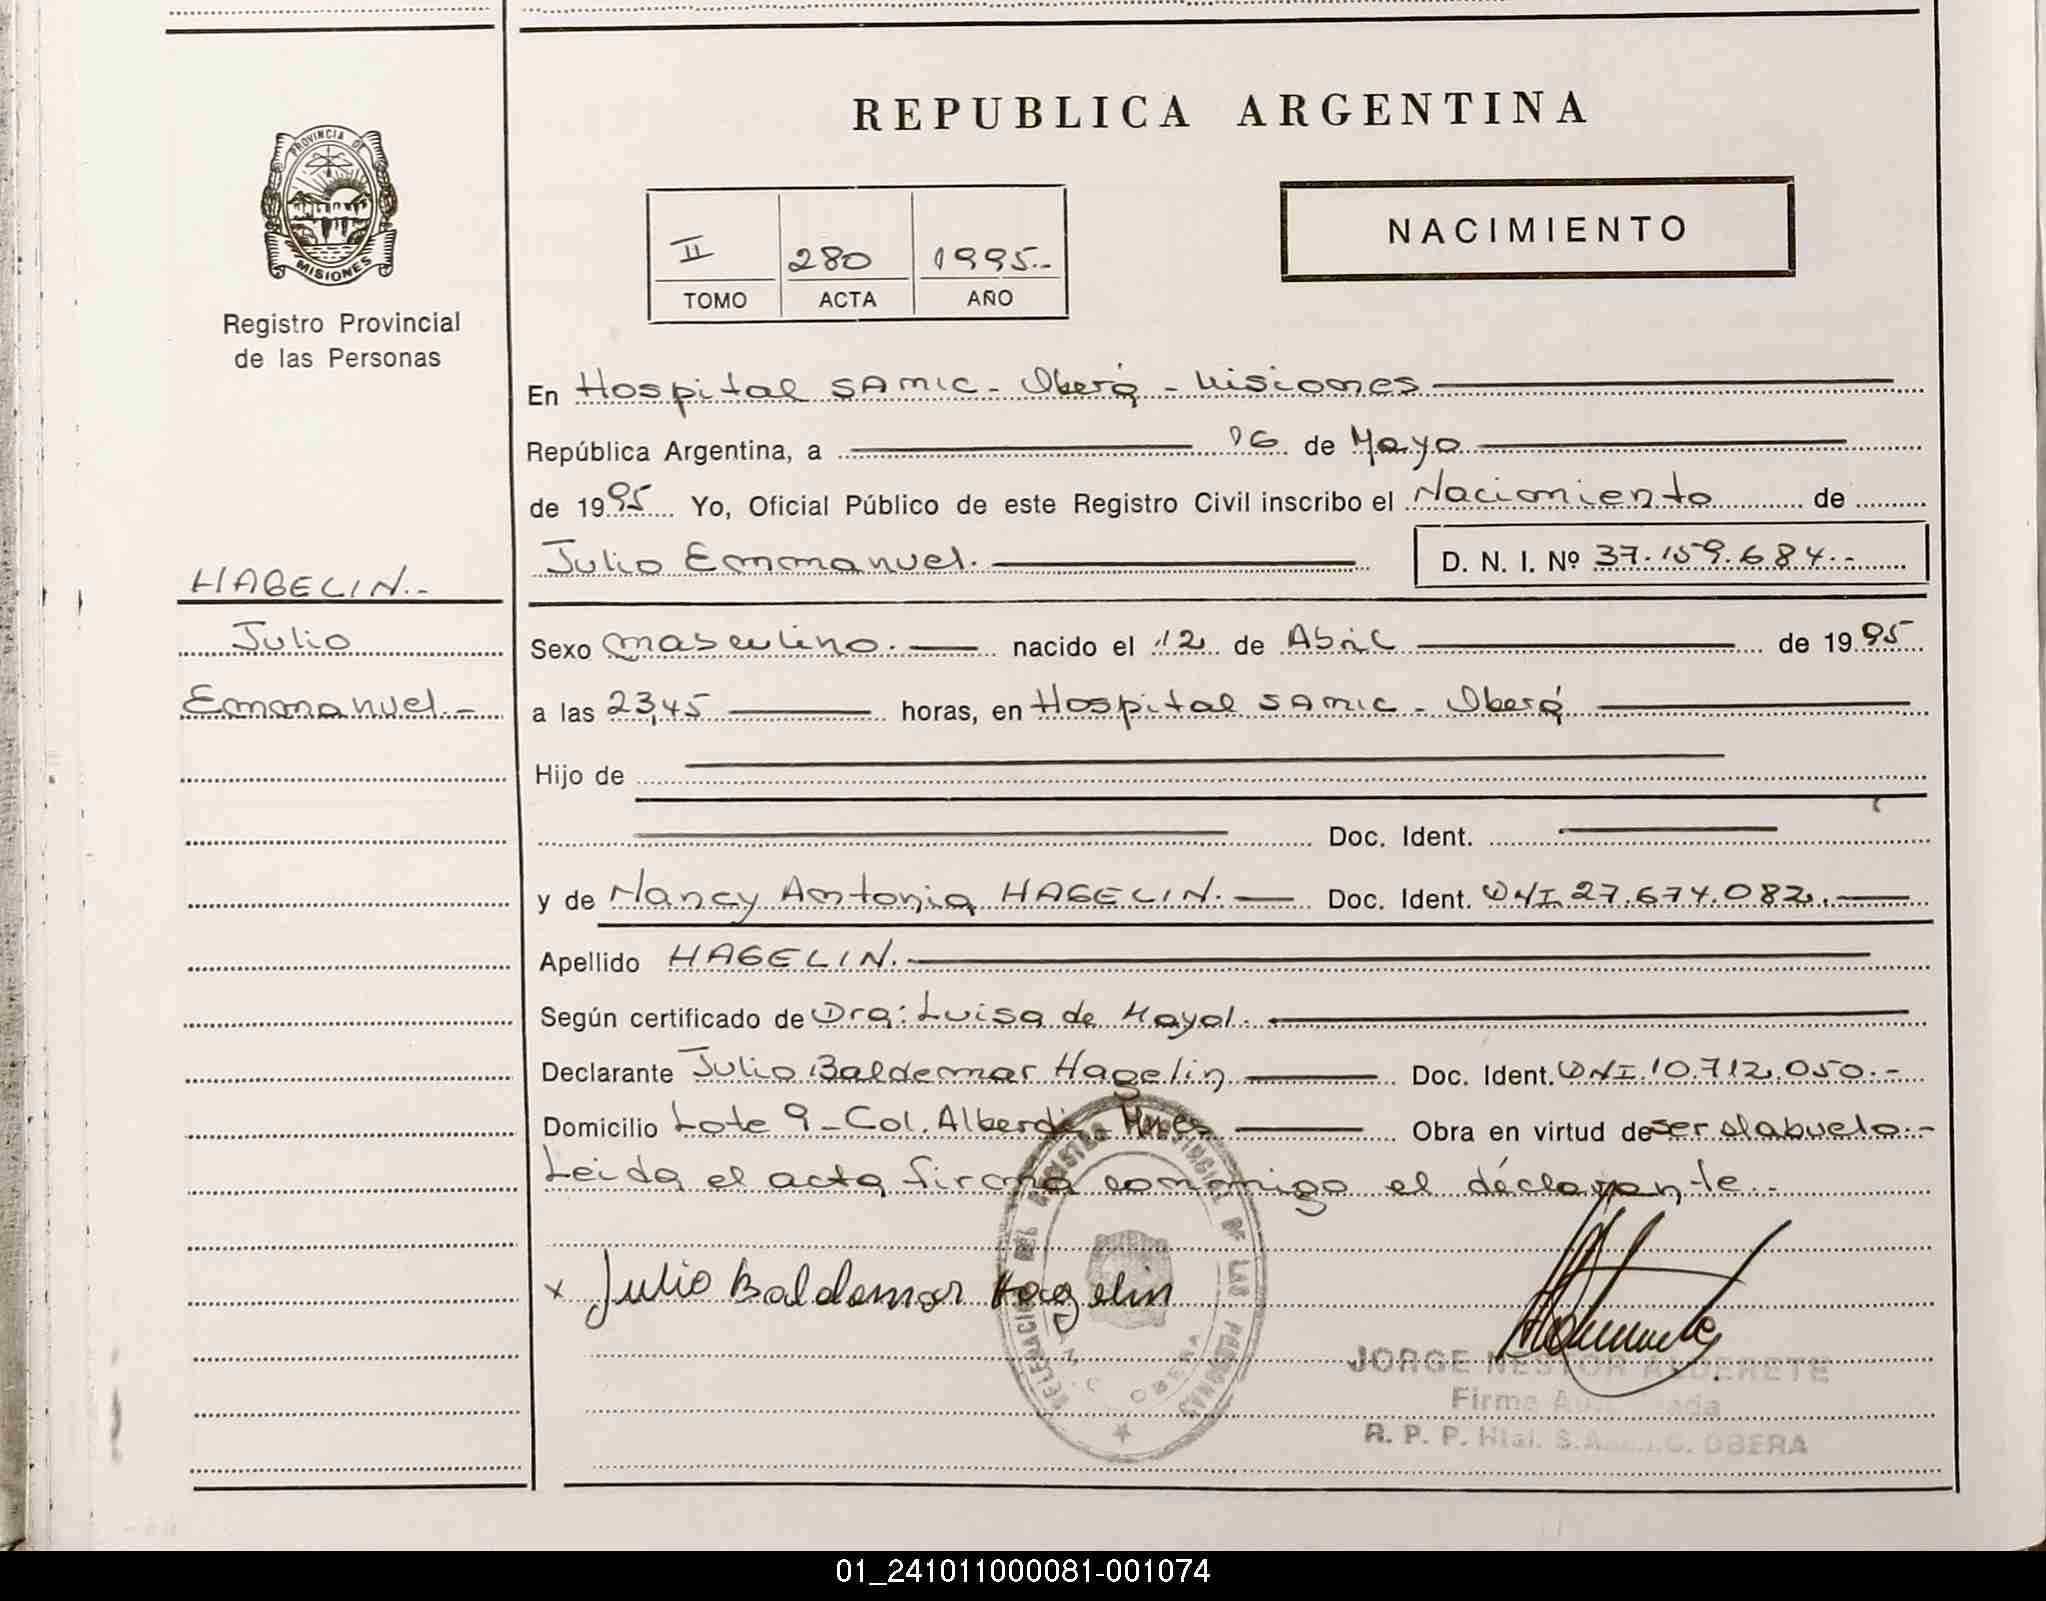 PROVINCIA DE
MISIONES
Registro Provincial
de las Personas
HAGELIN.-
Julio
Emmanuel.-
REPUBLICA ARGENTINA
II 280 1995.-
TOMO ACTA AÑO
NACIMIENTO
En Hospital SAMIC - Oberá - Misiones
República Argentina, a 16 de Mayo
de 1995 Yo, Oficial Público de este Registro Civil inscribo el Nacimiento de
Julio Emmanuel. D. N. I. Nº 37.159.684.-
Sexo masculino. nacido el 12 de Abril de 1995
a las 23,45 horas, en Hospital SAMIC - Oberá
Hijo de
Doc. Ident.
y de Nancy Antonia HAGELIN. Doc. Ident. DNI 27.674.082.
Apellido HAGELIN.
Según certificado de Dra: Luisa de Mayol.
Declarante Julio Baldemar Hagelin Doc. Ident. DNI 10.712.050.-
Domicilio Lote 9 - Col. Alberdi - Mnes Obra en virtud de ser el abuelo.-
Leida el acta firma conmigo el declarante.-
x Julio Baldemar Hagelin
DELEGACION DEL REGISTRO PROVINCIAL DE LAS PERSONAS
OBERA
JORGE NESTOR ALDERETE
Firma
R. P. P. Htal. OBERA
01_241011000081-001074